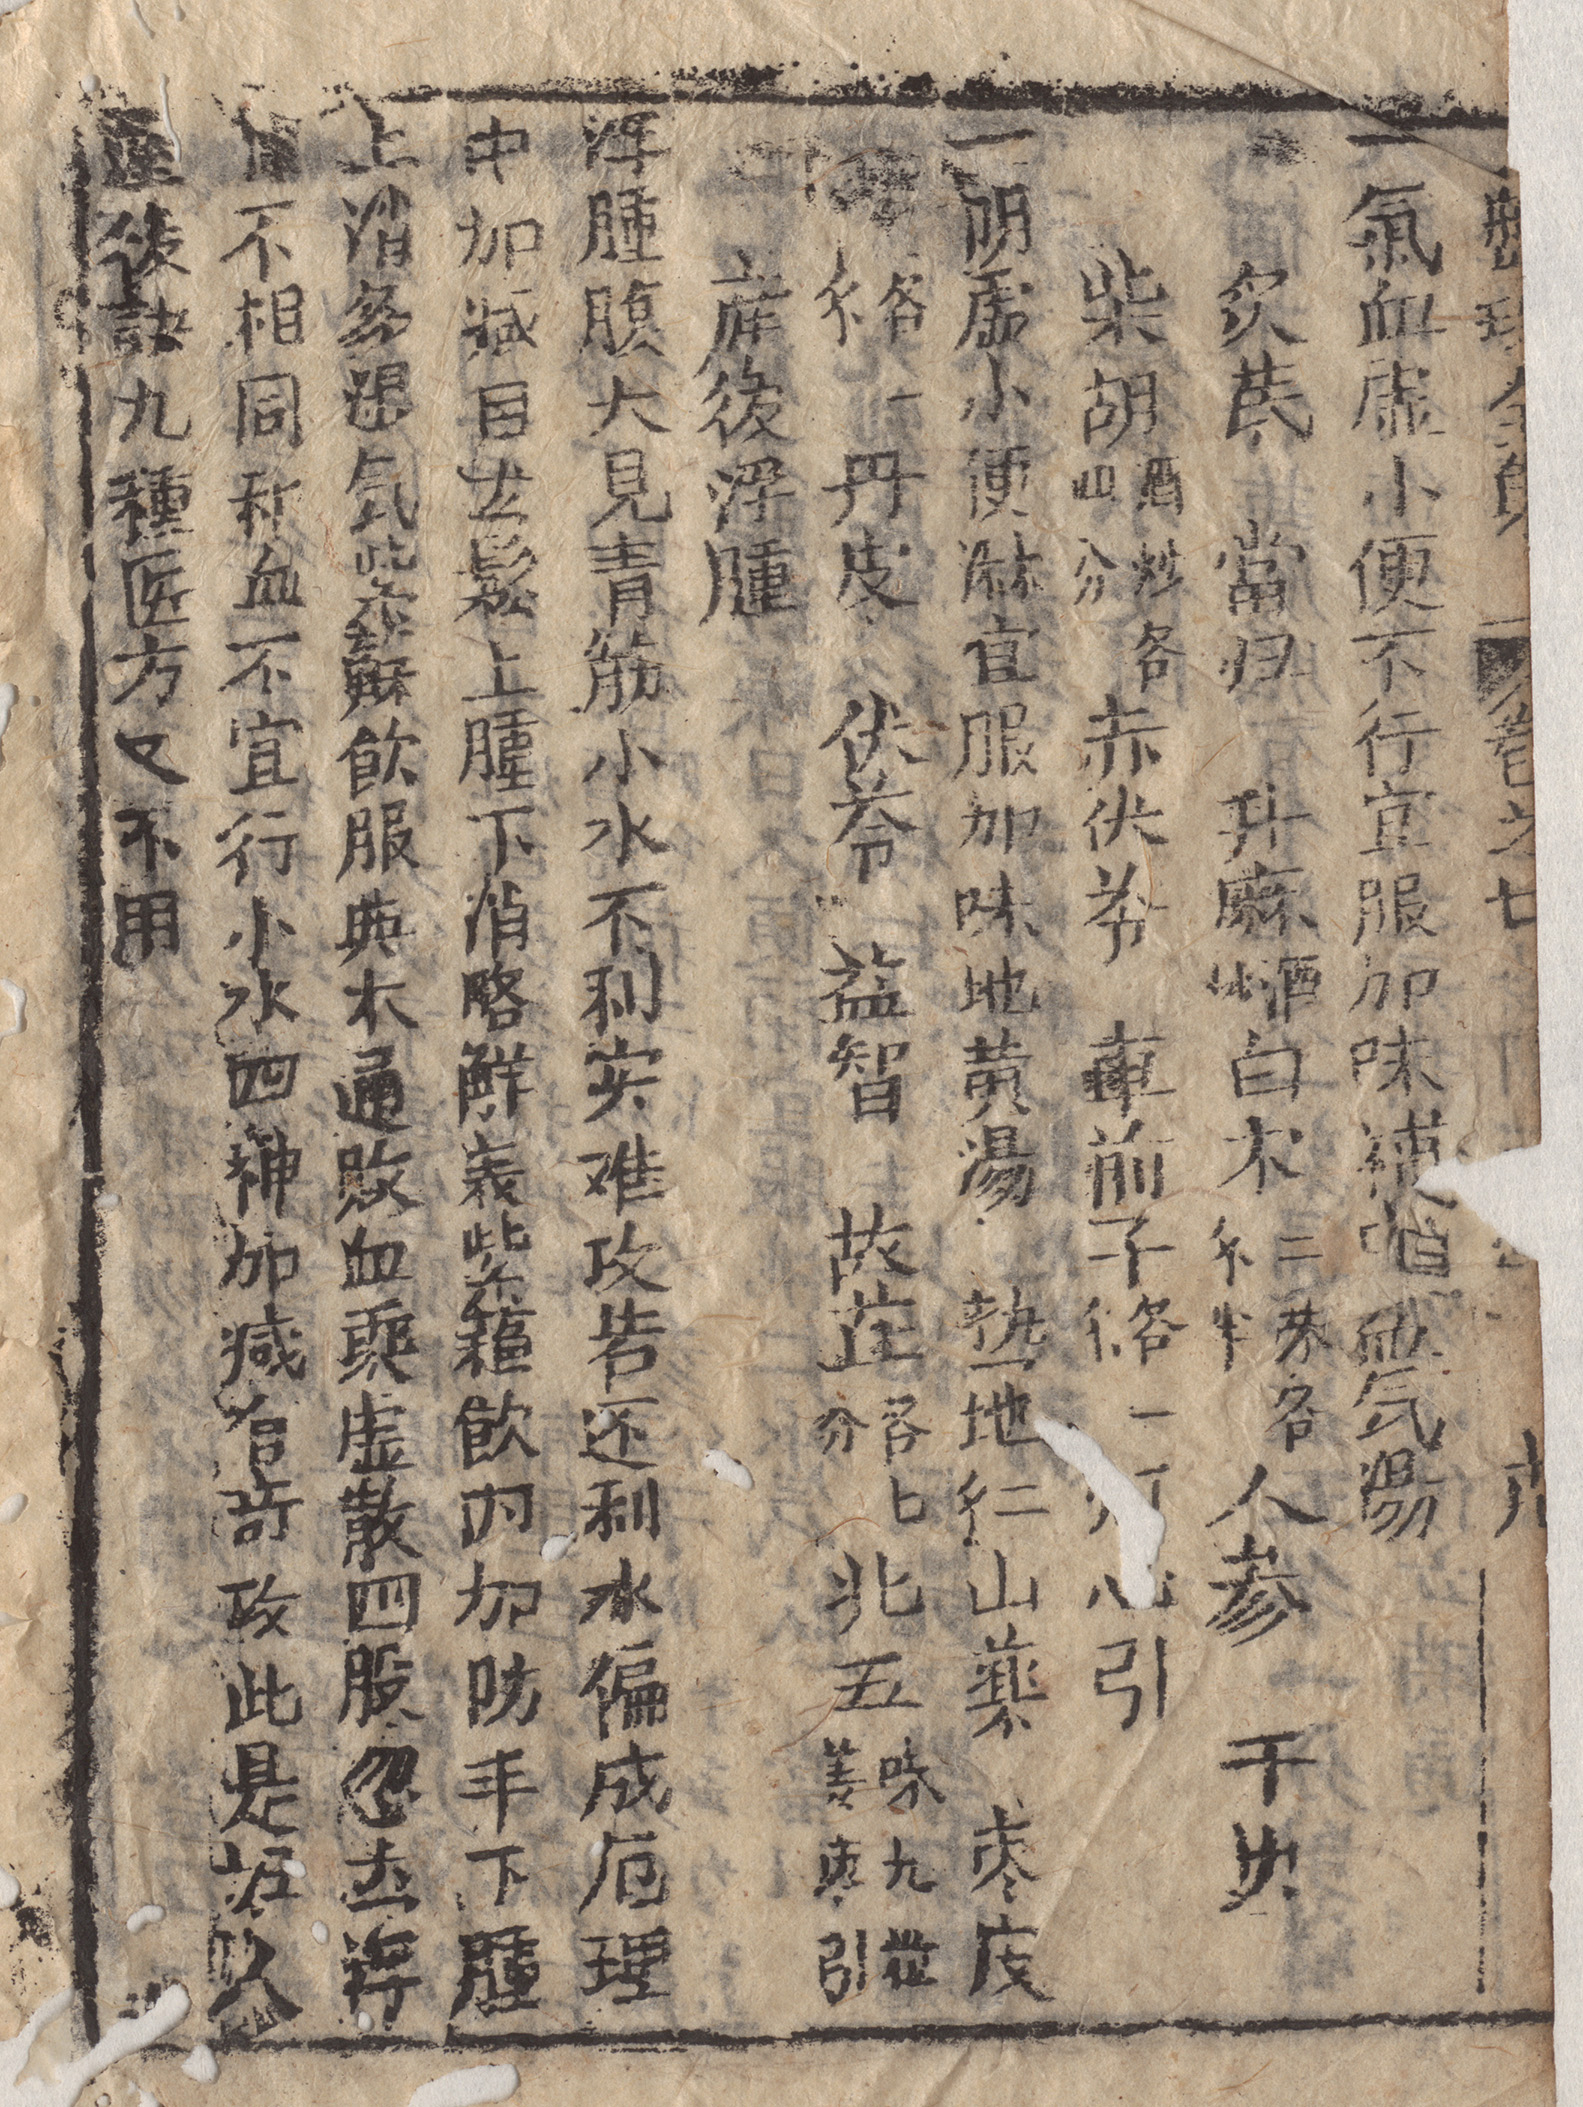 卷之七
一氣血虛小便不行宜服加味補血气湯
炙芪 當归 升麻酒炒 白朮 二朱各 人参 干
柴胡酒炒各四分 赤伏苓 車前子各一 心引
一阴虛小便淋宜服加味地黄湯 熟地 仁 山藥 枣皮
各一 丹皮 伏苓 益智 故芷各七分 北五味九粒 姜枣引
産後浮腫
浮腫腹大見青筋小水不利实难攻若还利水偏成厄理
中加减目去鬆上腫下消略解裏紫蘓飲内加防牛下腫
上消多恶气紫蘇飲服典木通败血乘虛散四股忽去将
不相同和血不宜行小水四神加减有奇攻此是
産後訣九種医方又不用